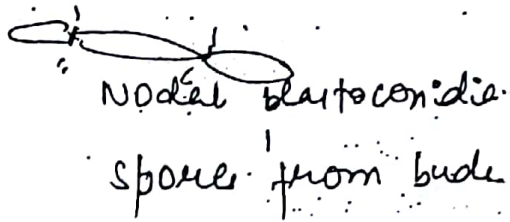 Nodal blastoconidia.
spores from buds